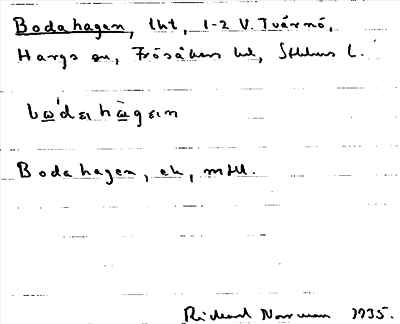 Bodahagen, lht, 1-2 V. Tvärnö,
Hargs sn, Frösåkers hd, Sthlms l.
bὼdɛıhàgɛın
Bodahagen, ek, mtl.
Rickard Norrman 1935.